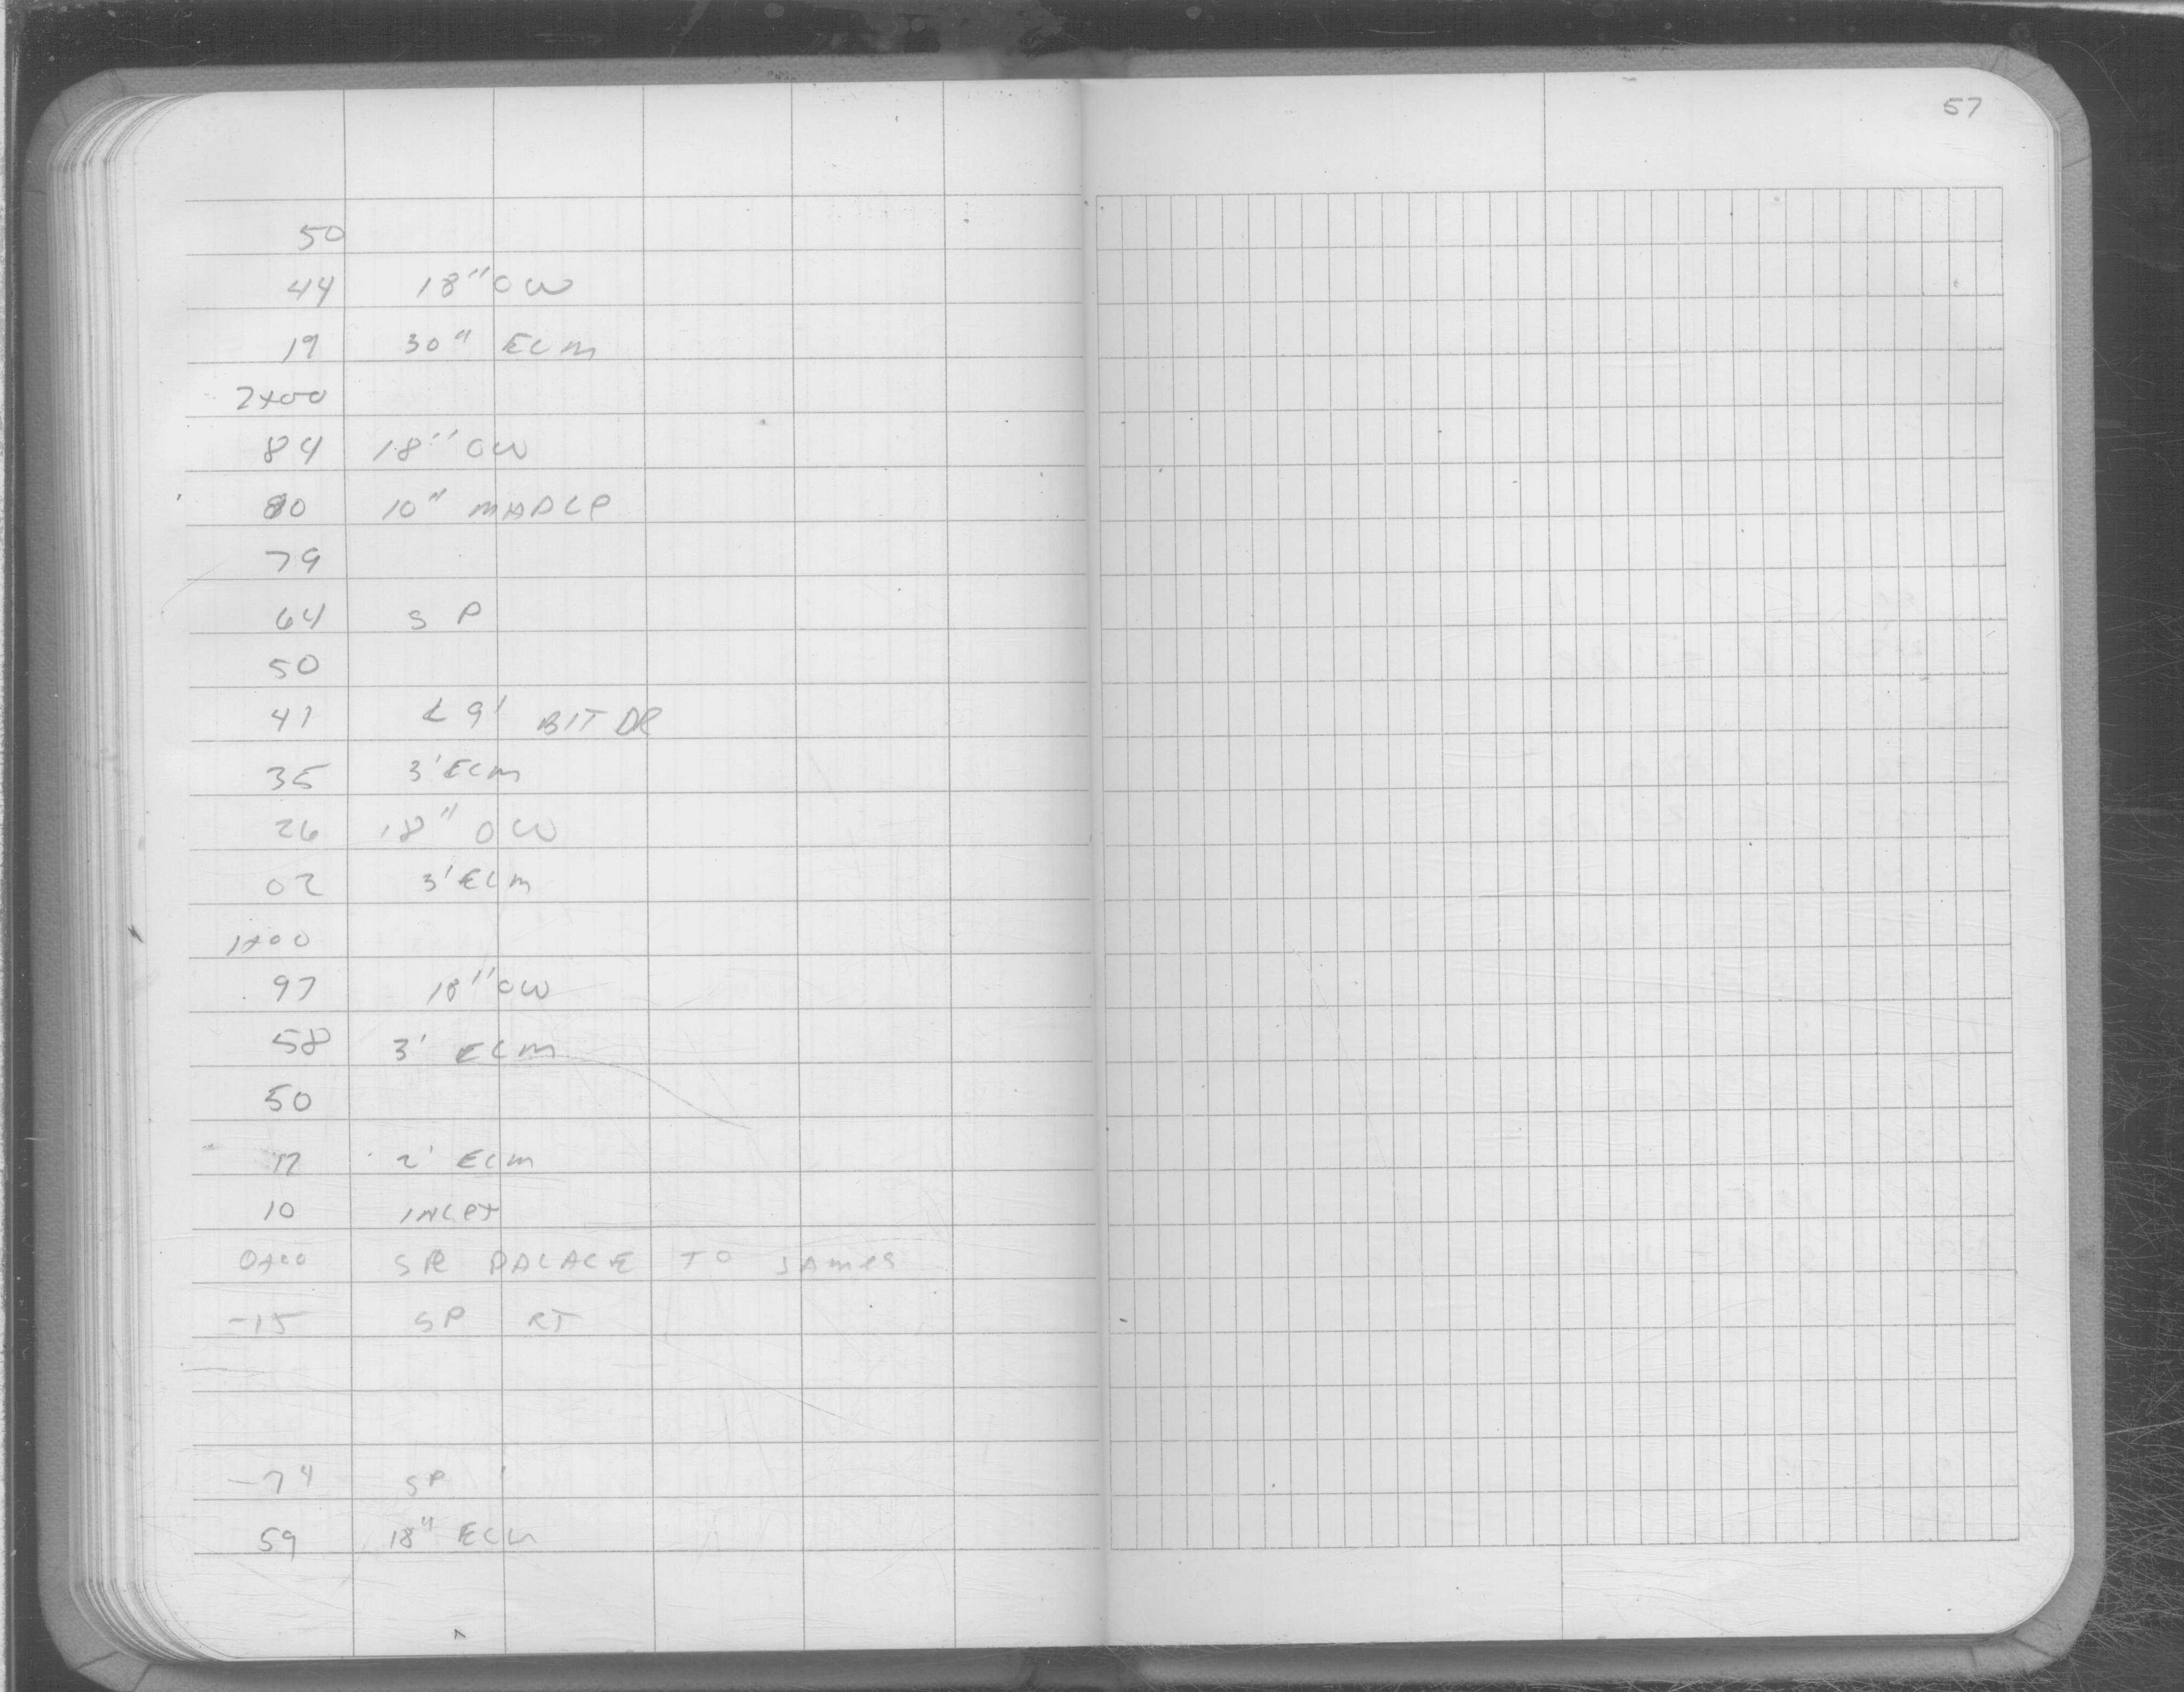 57
50
44 18" OW
19 30" ELM
2+00
84 18" OW
80 10" MAPLE
79
64 SP
50
41 9' BIT DR
35 3' ELM
26 18" OW
02 3' ELM
1+00
97 18" OW
58 3' ELM
50
17 2' ELM
10 INLET
0+00 PALACE TO JAMES
-15 SP RT
-74 SP
59 18" ELM